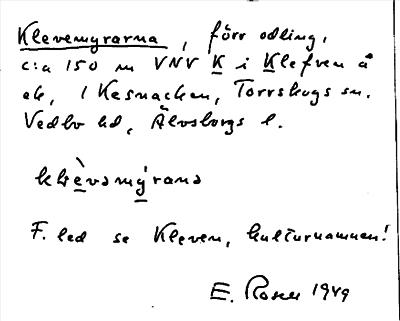 Klevemyrarna, förr odling,
c:a 150 m VNV K i Klefven å
ek, 1 Kesnacken, Torrskogs sn.
Vedbo hd, Älvsborgs l.
klèvamýrana
F. led se Kleven, kulturnamnen!
E. Rosell 1949